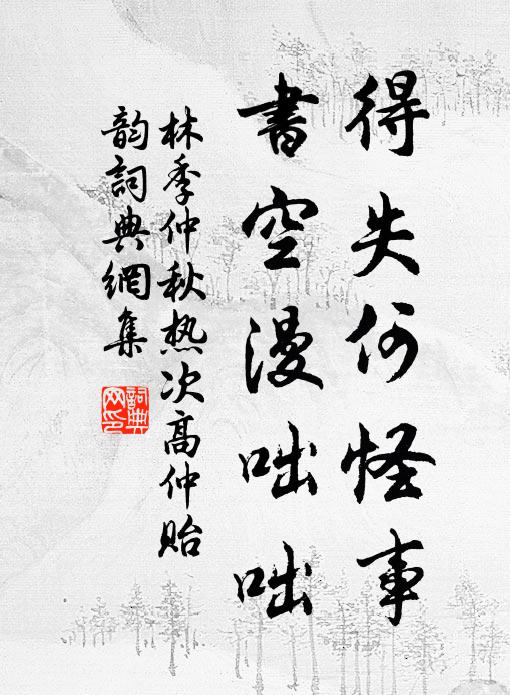 得失何怪事
書空漫咄咄
林季仲秋热次高仲貽
韵詞典網集
詞典网印